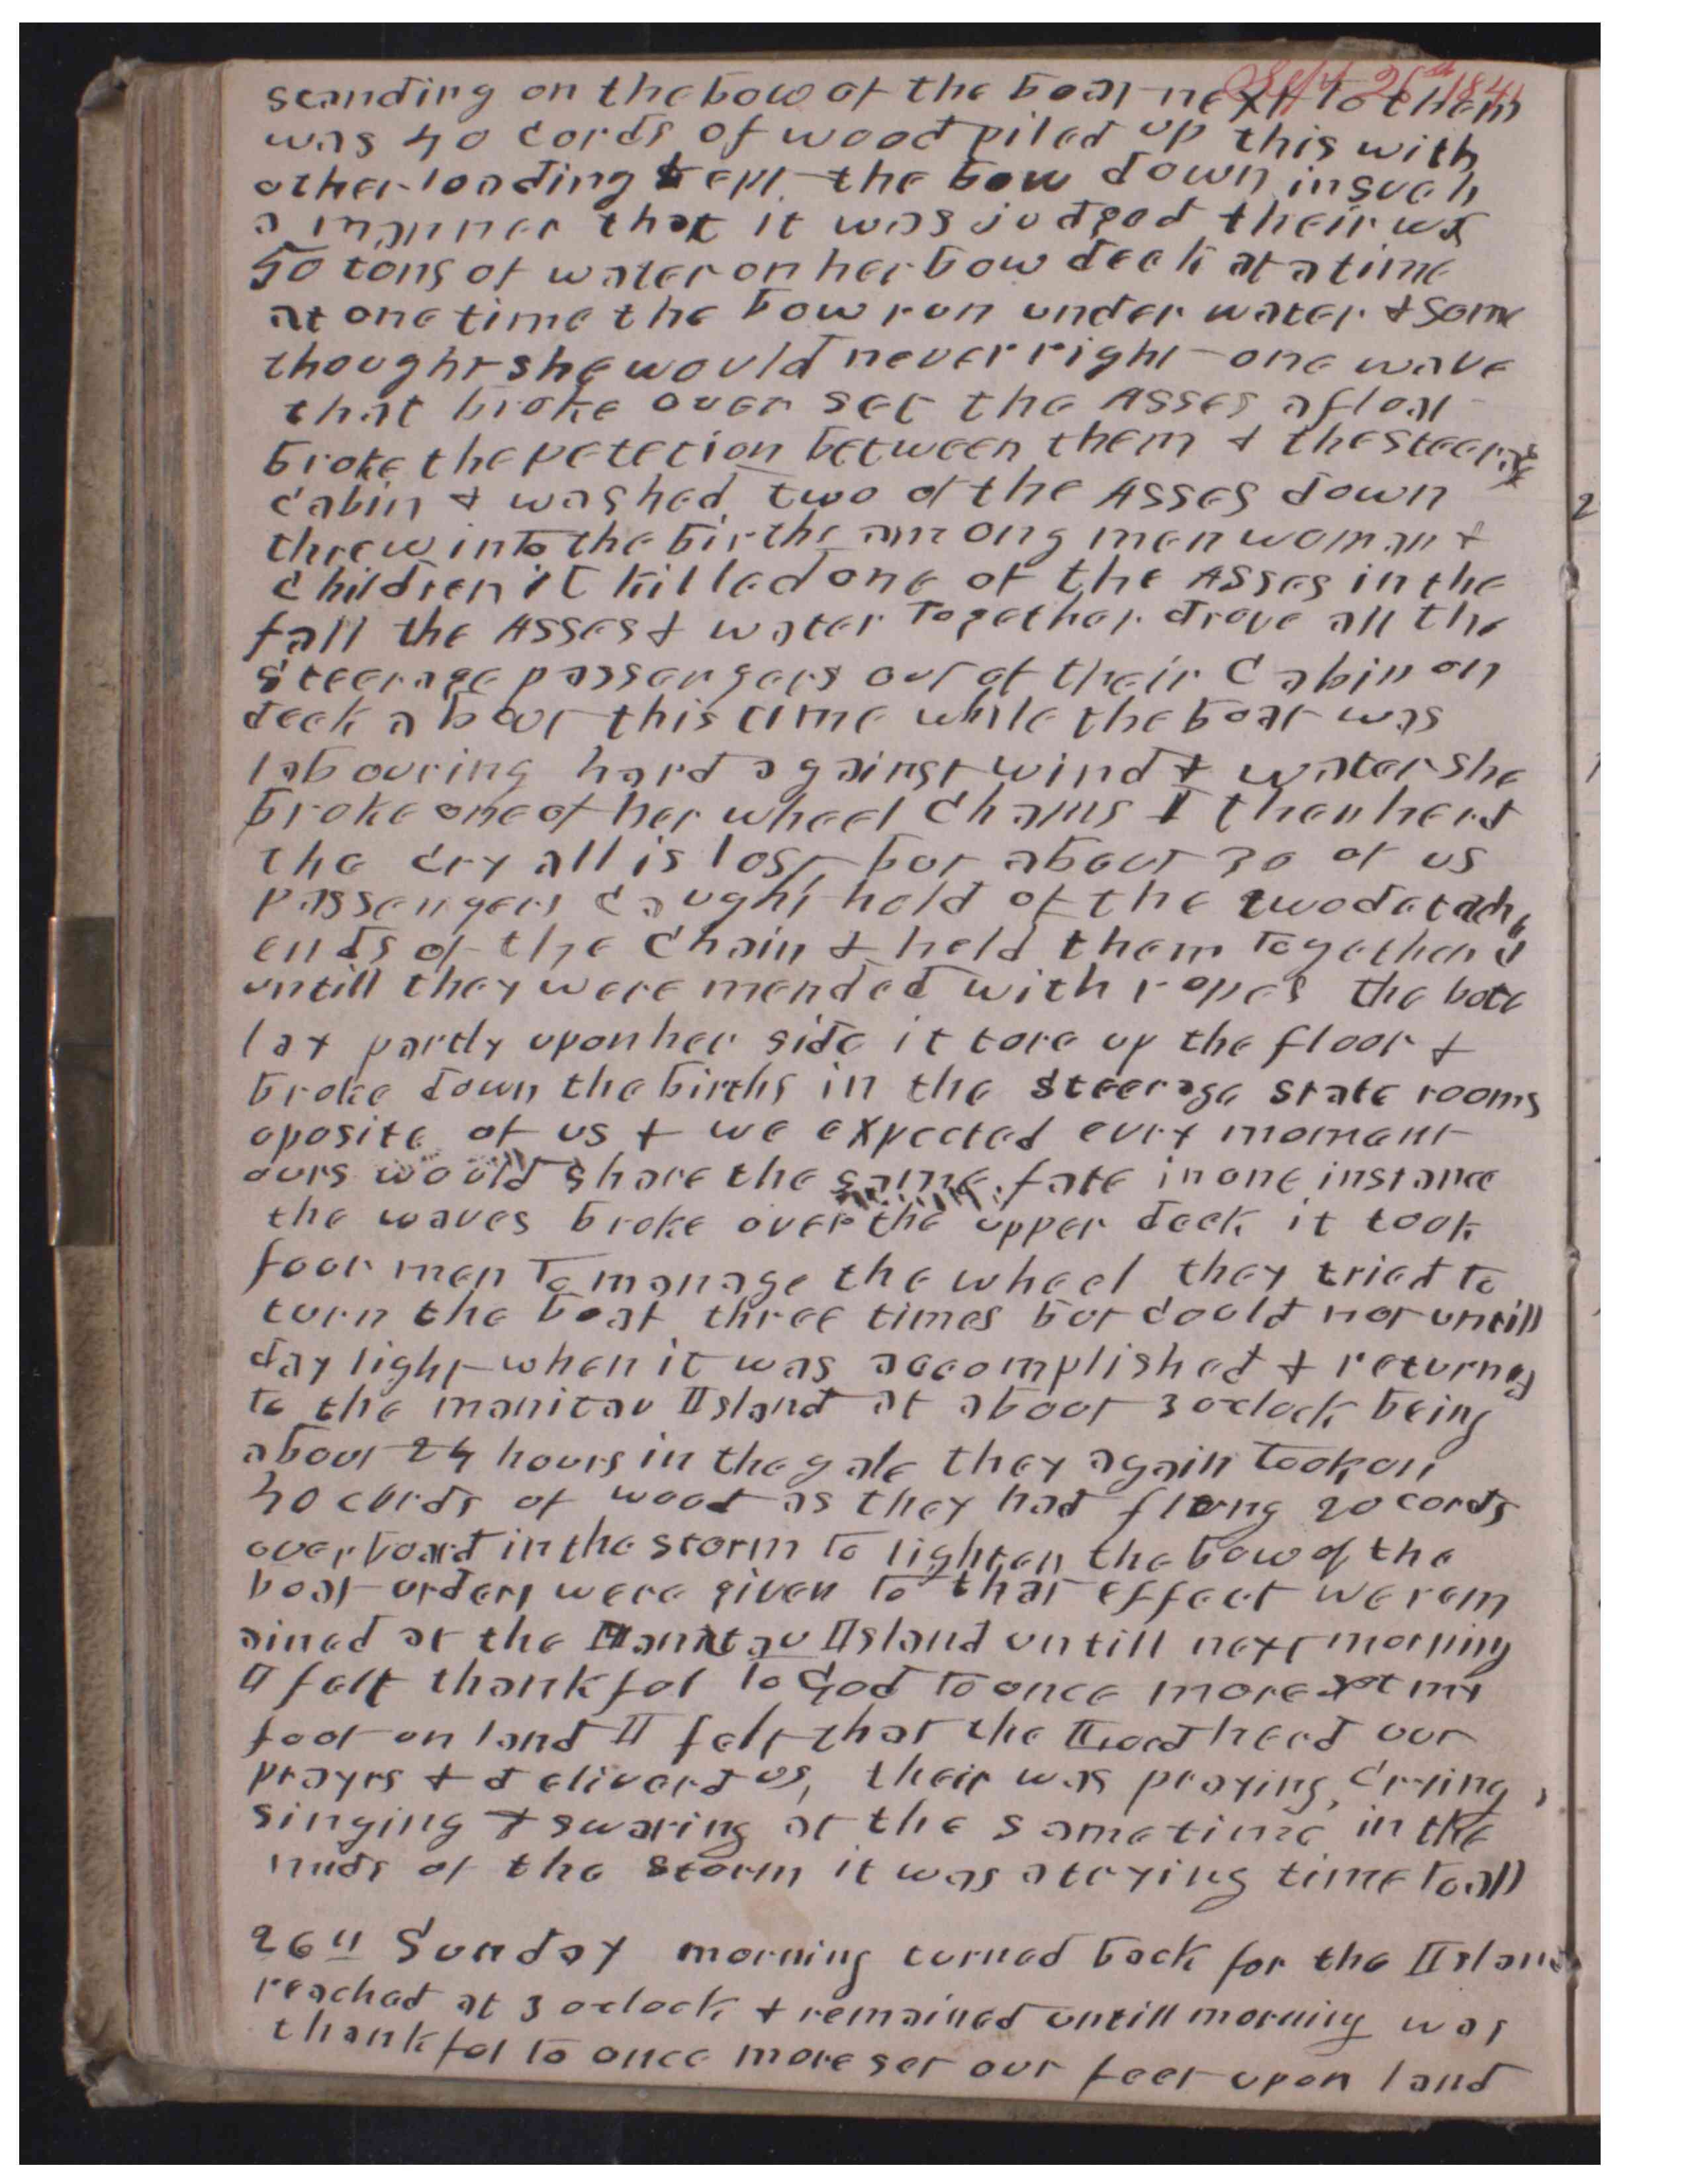 Sept 26th 1841
standing on the bow of the boat next to them
was 40 cords of wood piled up this with
other loading kept the bow down in such
a manner that it was judged their was
50 tons of water on her bow deck at a time
at one time the bow run under water & some
thought she would never right one wave
that broke over set the Asses afloat
broke the petetion between them & the steerage
cabin & washed two of the Asses down
threw into the births among men woman &
children it killed one of the Asses in the
fall the Asses & water together drove all the
steerage passengers out of their Cabin on
deck about this time while the boat was
labouring hard against wind & water she
broke one of her wheel chains I then herd
the cry all is lost, but about 30 of us
passengers caught hold of the two detach
ends of the chain & held them together
untill they were mended with ropes the bote
lay partly upon her side it tore up the floor &
broke down the births in the steerage state rooms
oposite of us & we expected evry moment
ours would share the same fate in one instance
the waves broke over the upper deck it took
foor men to manage the wheel they tried to
turn the boat three times but could not untill
day light when it was accomplished & returned
to the manitau Island at about 3 oclock being
about 24 hours in the gale they again took on
40 cords of wood as they had flung 20 cords
overboard in the storm to lighten the bow of the
boat orders were given to that effect we rem
ained at the Manitau Island untill next morning
I felt thankful to God to once more set my
foot on land I felt that the Lord herd our
prayrs & deliverd us, their was praying, crying,
singing & swaring at the same time in the
mids of the storm it was a trying time to all
26th Sunday morning turned back for the Island
reached at 3 oclock & remained untill morning was
thankful to once more set our feet upon land